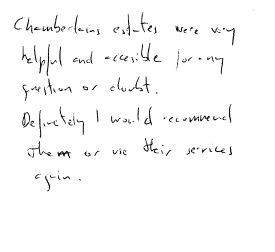 Chamberlains estates were very
helpful and accesible for any
question or doubt.
Definetely I would recommend
them or use their services
again.